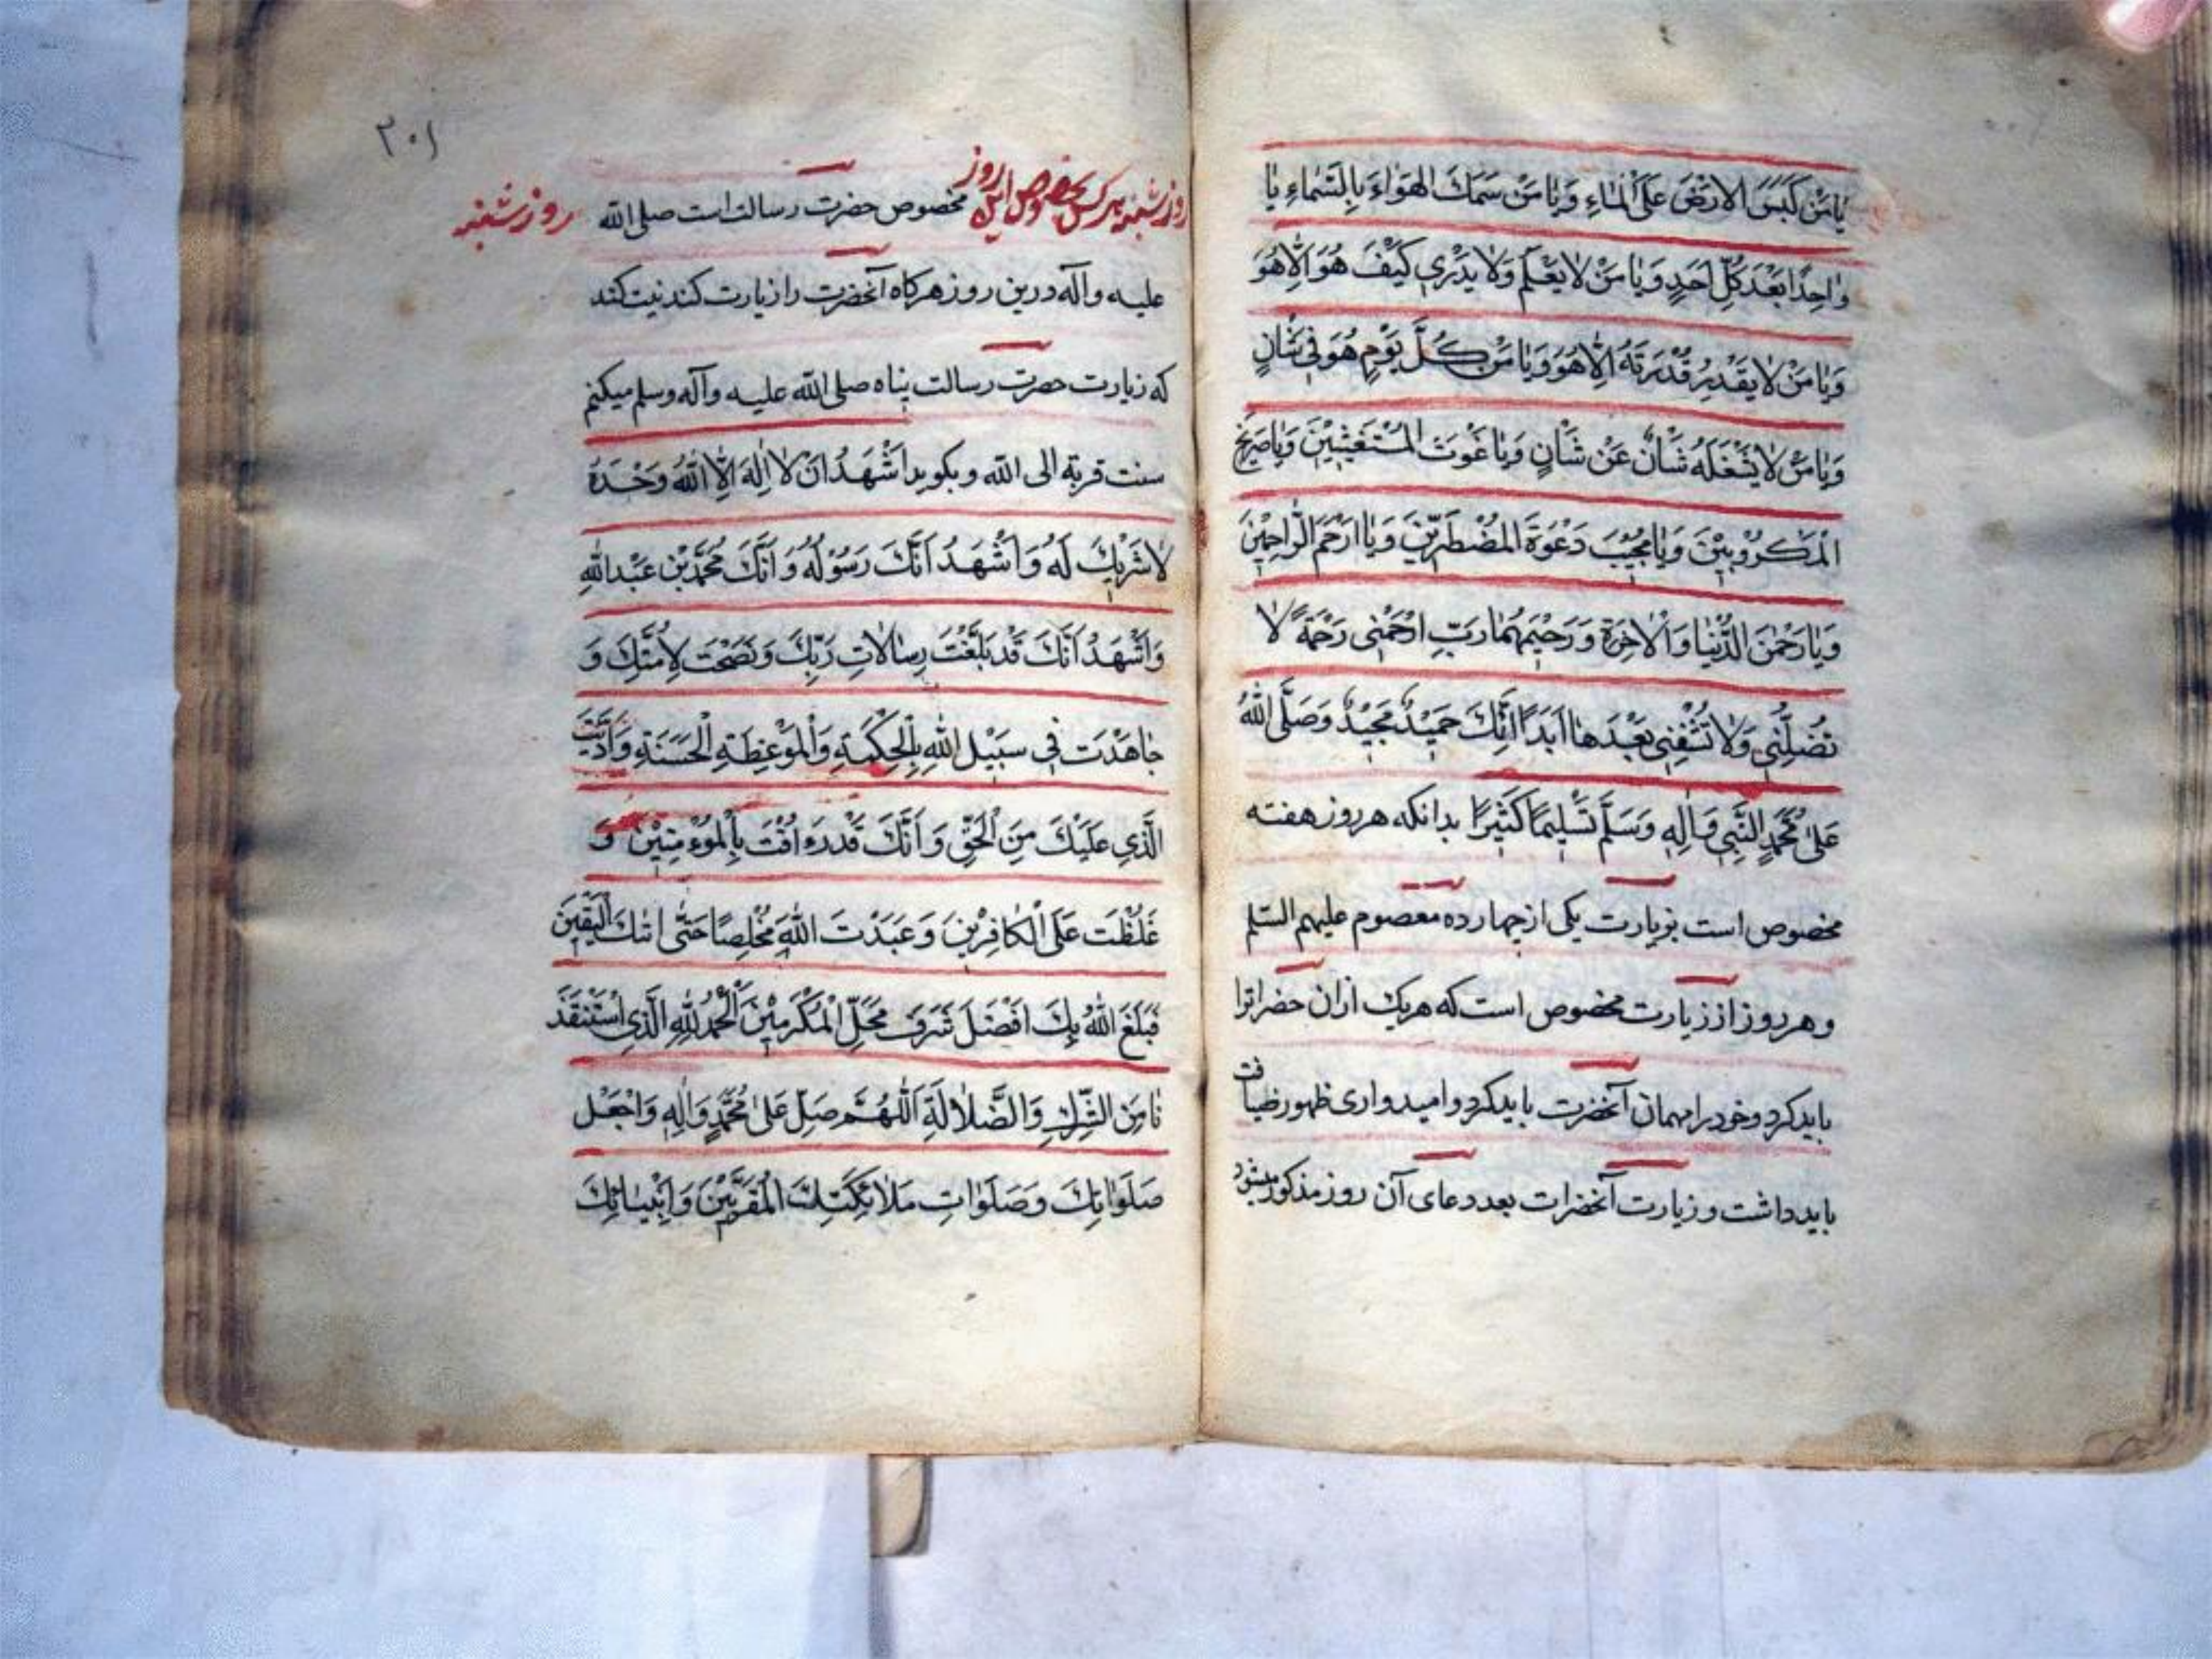 يٰا مَنْ كَبَسَ الْاَرْضَ عَلَى الْمٰاءِ وَيٰا مَنْ سَمَكَ الهَوٰاءَ بِالسَّمٰاءِ يٰا
وٰاحِدًا بَعْدَ كُلِّ اَحَدٍ وَيٰا مَنْ لٰا يَعْلَمُ وَلٰا يَدْرِي كَيْفَ هُوَ اِلّٰا هُوَ
وَيٰا مَنْ لٰا يَقْدِرُ قُدْرَتَهُ اِلّٰا هُوَ وَيٰا مَنْ كُلَّ يَوْمٍ هُوَ فِي شَانٍ
وَيٰا مَنْ لٰا يَشْغَلُهُ شَأْنٌ عَنْ شَأْنٍ وَيٰا غَوْثَ المُسْتَغِيثِيْنَ وَيٰا صَرِيْخَ
الْمَكرُوْبِيْنَ وَيٰا مُجِيْبَ دَعْوَةَ المُضْطَرِّيْنَ وَيٰا اَرْحَمَ الرّٰاحِمِيْنَ
وَيٰا رَحْمٰنَ الدُّنْيٰا وَالْاٰخِرَةِ وَرَحِيْمَهُمٰا رَبِّ ارْحَمْنِي رَحْمَةً لٰا
تُضِلُّنِي وَلٰا تُشْقِنِي بَعْدَهٰا اَبَدًا اِنَّكَ حَمِيْدٌ مَجِيْدٌ وَصَلَّى اللّٰهُ
عَلىٰ مُحَمَّدٍ النَّبِيِّ وَاٰلِهِ وَسَلَّمَ تَسْلِيمًا كَثِيْرًا بدانكه هر روز هفته
مخصوص است بزيارت يكى از چهارده معصوم عليهم السلم
وهر روز از زيارت مخصوص است كه هريك ازان حضراترا
بايدكرد وخود را مهمان آنحضرت بايدكرد واميدوارى ظهور ضيافت
بايد داشت وزيارت آنحضرات بعد دعاى آن روز مذكور ميشود
٣٠١
روز شنبه
مخصوص اين روز مخصوص حضرت رسالت است صلى الله
عليه وآله درين روز هركاه آنحضرت را زيارت كنند نيت كنند
كه زيارت حضرت رسالت پناه صلى الله عليه وآله وسلم ميكنم
سنت قربة الى الله وبكويد اَشْهَدُ اَنْ لٰا اِلٰهَ اِلَّا اللّٰهُ وَحْدَهُ
لٰا شَرِيْكَ لَهُ وَاَشْهَدُ اَنَّكَ رَسُوْلُهُ وَاَنَّكَ مُحَمَّدُ بْنِ عَبْدِ اللّٰهِ
وَاَشْهَدُ اَنَّكَ قَدْ بَلَّغْتَ رِسٰالٰاتِ رَبِّكَ وَنَصَحْتَ لِاُمَّتِكَ وَ
جٰاهَدْتَ فِي سَبِيْلِ اللّٰهِ بِالْحِكْمَةِ وَالْمَوْعِظَةِ الْحَسَنَةِ وَاَدَّيْتَ
الَّذِي عَلَيْكَ مِنَ الْحَقِّ وَاَنَّكَ قَدْ رَءُفْتَ بِالْمُؤْمِنِيْنَ وَ
غَلُظْتَ عَلَى الْكٰافِرِيْنَ وَعَبَدْتَ اللّٰهَ مُخْلِصًا حَتّٰى اَتٰيكَ الْيَقِيْنَ
فَبَلَغَ اللّٰهُ بِكَ اَفْضَلَ شَرَفِ مَحَلِّ الْمُكَرَّمِيْنَ اَلْحَمْدُ لِلّٰهِ الَّذِي اسْتَنْقَذَ
نٰا مِنَ الشِّرْكِ وَالضَّلٰالَةِ اَللّٰهُمَّ صَلِّ عَلىٰ مُحَمَّدٍ وَاٰلِهِ وَاجْعَلْ
صَلَوٰاتِكَ وَصَلَوٰاتِ مَلٰائِكَتِكَ الْمُقَرَّبِيْنَ وَاَنْبِيٰائِكَ